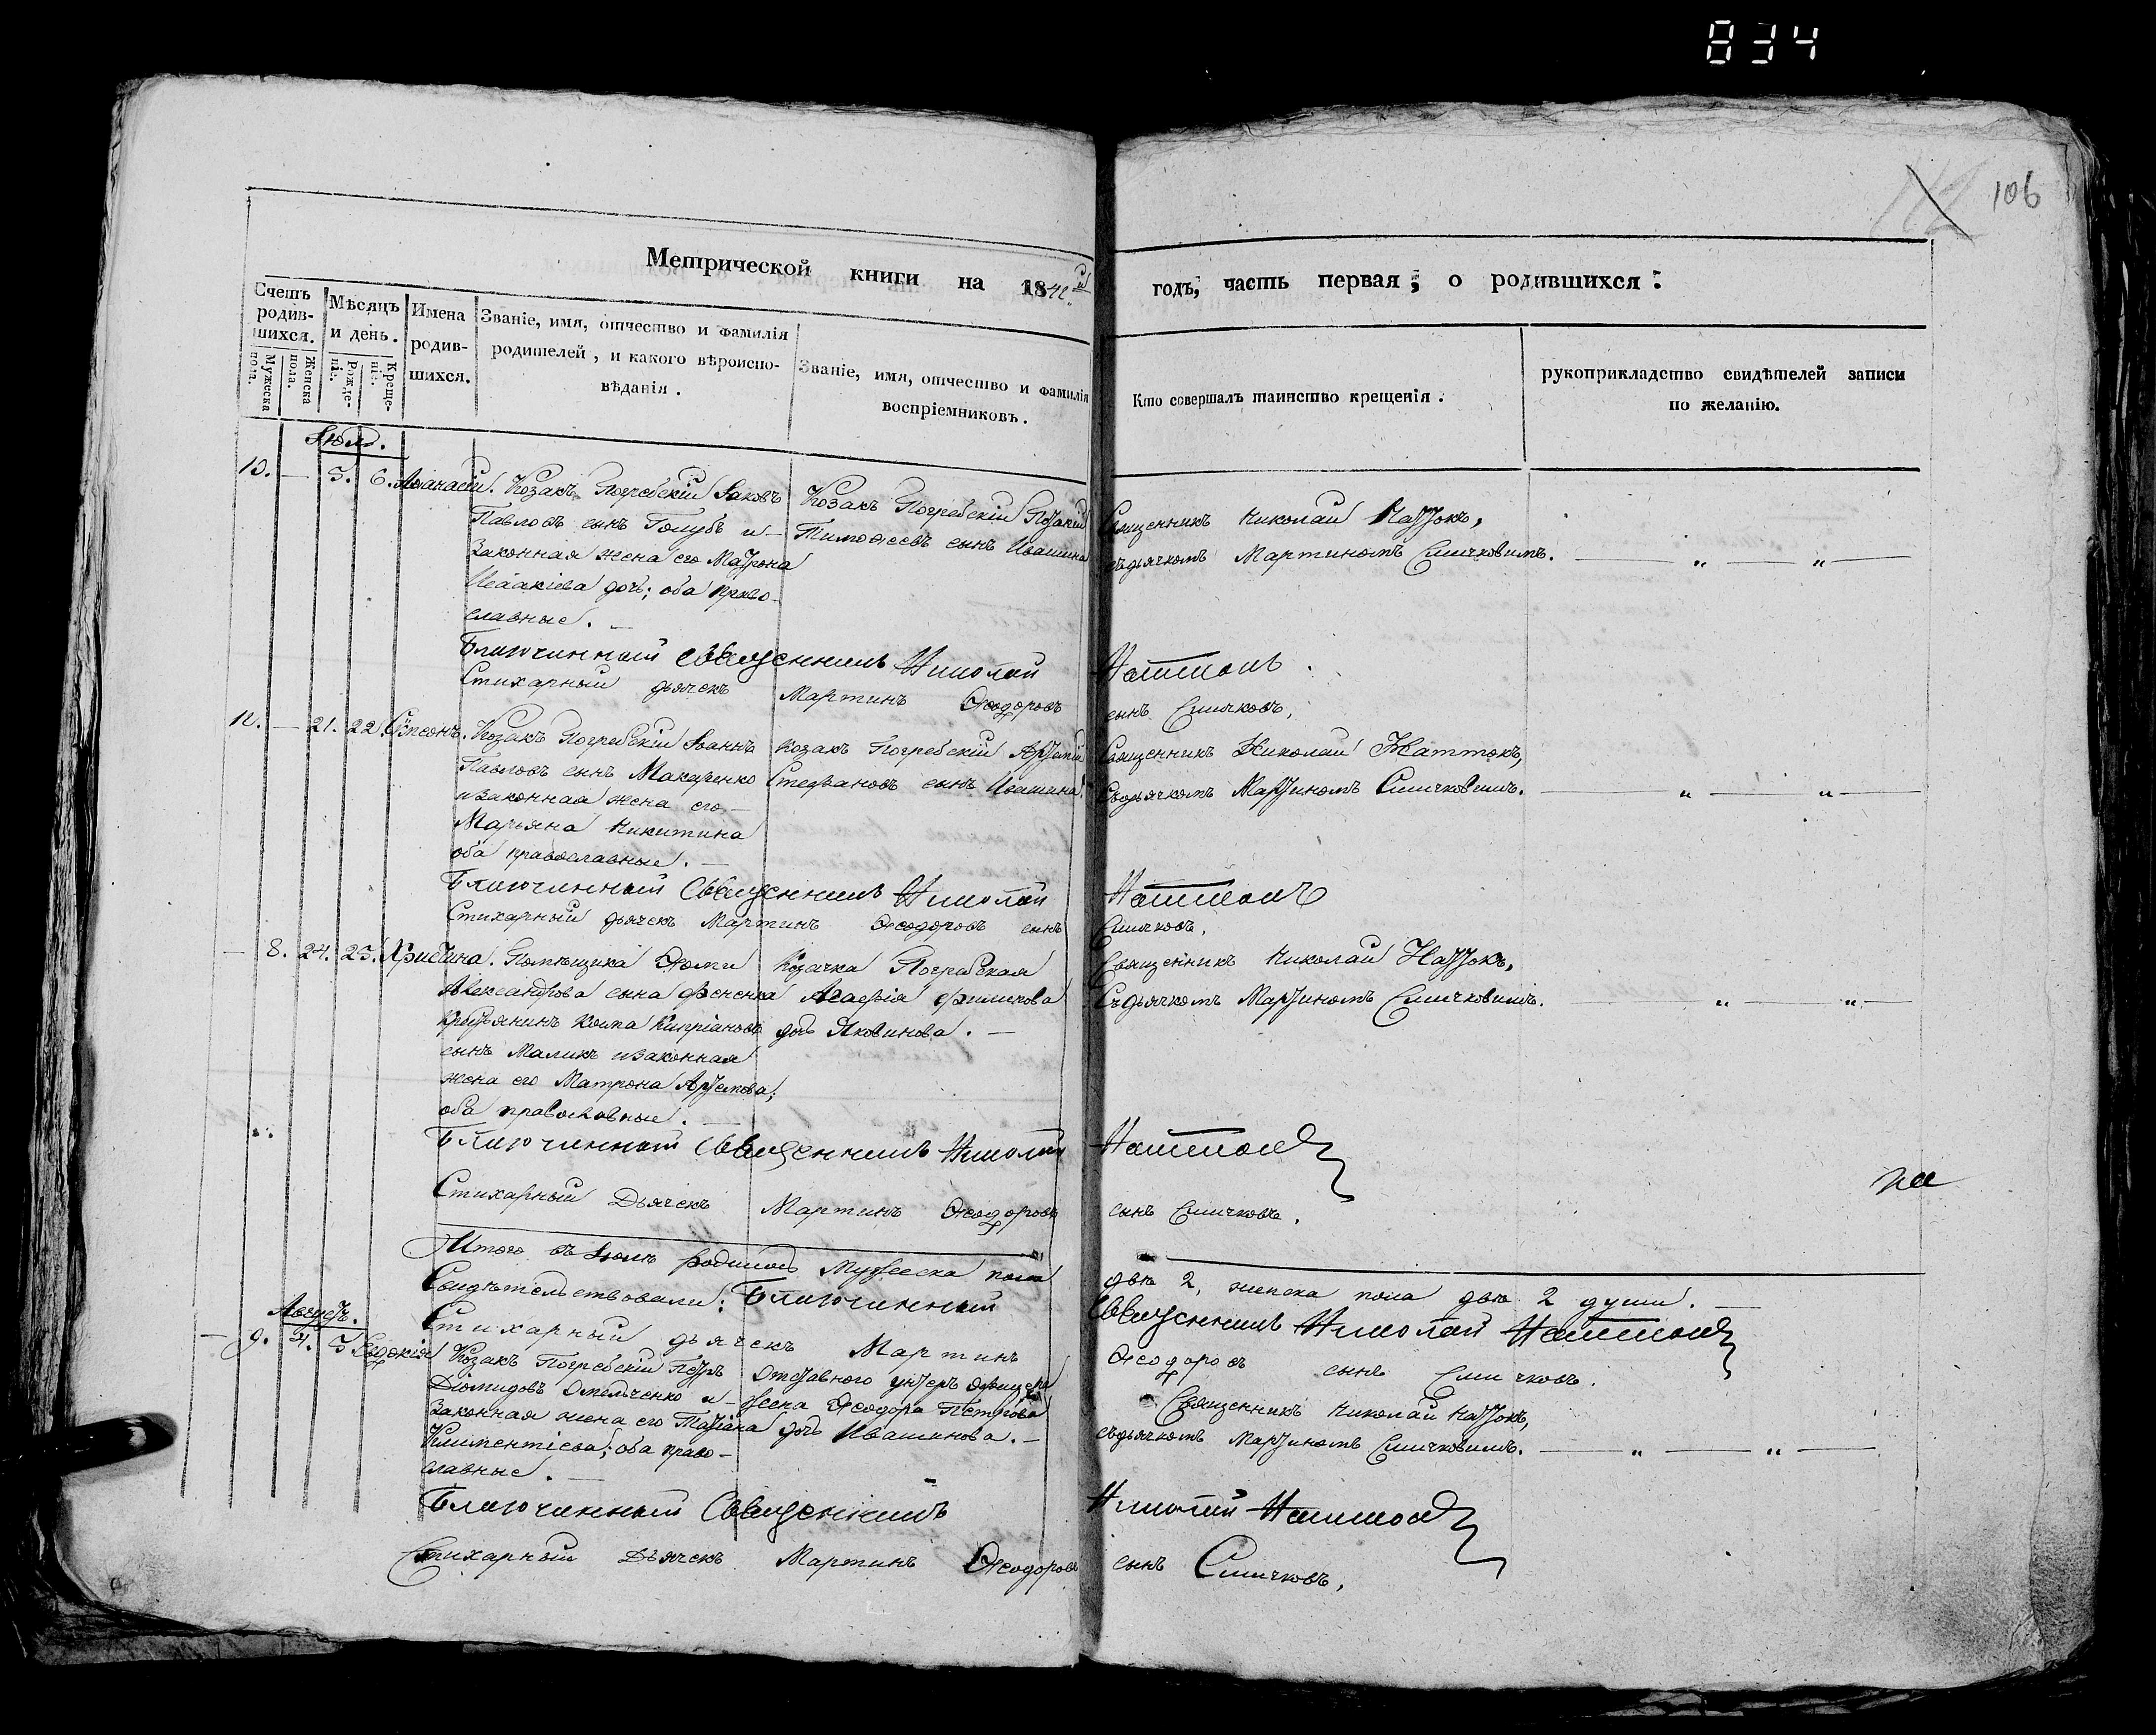 834
106
Метрической книги на 1841й годъ, часть первая; о родившихся:
Счетъ родившихся.
Мужеска пола.
Женска пола.
Мѣсяцъ и день.
Рожденіе.
Крещеніе.
Имена родившихся.
Званіе, имя, отчество и фамилія
родителей, и какого вѣроиспо-
вѣданія.
Званіе, имя, отчество и фамилія
воспріемниковъ.
Кто совершалъ таинство крещенія.
рукоприкладство свидѣтелей записи
по желанію.
Іюль.
— 5. 6. Аѳанасій. Козакъ Погребскій Іаковъ
Павловъ сынъ Голубъ и
Законная жена его Матрона
Исаакіева дочь; оба право-
славные. —
Козакъ Погребскій
Тимоѳеевъ сынъ Ивашина
Священникъ Николай Наттокъ,
съдьячкомъ Мартиномъ Смичковимъ. — „ — „ —
Благочинный Священникъ Николай Наттокъ.
Стихарный дьячекъ Мартинъ Ѳеодоровъ сынъ Смичковъ,
— 21. 22. Сѵмеонъ. Козакъ Погребскій Іоаннъ
Павловъ сынъ Макаренко
изаконная жена его
Марьяна Никитина
оба православные. —
Козакъ Погребскій Артемій
Стефановъ сынъ Ивашина.
Священникъ Николай Наттокъ,
Съдьячкомъ Мартиномъ Смичковимъ. — „ — „ —
Благочинный Священникъ Николай Наттокъ
Стихарный дьячекъ Мартинъ Ѳеодоровъ сынъ Смичковъ,
— 8. 24. 25. Христина. Помѣщика Ѳомы
Александрова сына Фененка
Крестьянинъ Кипріановъ
сынъ Маликъ изаконная
жена его Матрона Артемова;
оба православные. —
Козачка Погребская
Агафія Филипова
дочь Яковинова. —
Священникъ Николай Наттокъ,
Съдьячкомъ Мартиномъ Смичковимъ. — „ — „ —
Благочинный Священникъ Николай Наттокъ
Стихарный Дьячекъ Мартинъ Ѳеодоровъ сынъ Смичковъ,
Итого въ Іюлѣ родилось Мужеска пола двѣ 2, женска пола двѣ 2 души. —
Свидѣтельствовали: Благочинный Священникъ Николай Наттокъ
Стихарный дьячекъ Мартинъ Ѳеодоровъ сынъ Смичковъ.
Августъ.
— 9. 4. 5 Евдокія Козакъ Погребскій Петръ
Діомидовъ Омельченко и
Законная жена его Татіана
Климентіева; оба право-
славные. —
Отставного унтеръ офицера
жена Ѳеодора Петрова
дочь Ивашинова. —
Священникъ Николай Наттокъ,
съдьячкомъ Мартиномъ Смичковимъ. — „ — „ —
Благочинный Священникъ Николай Наттокъ
Стихарный Дьячекъ Мартинъ Ѳеодоровъ сынъ Смичковъ,